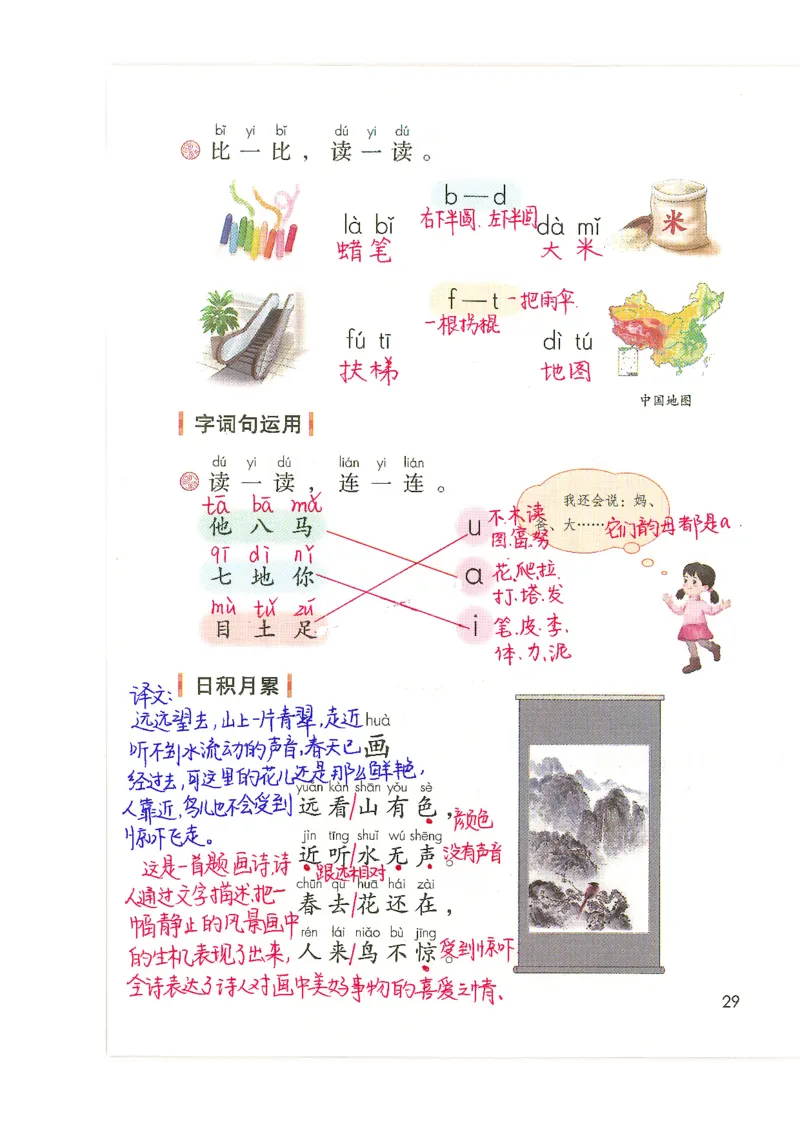 bǐ yi bǐ dú yi dú
比一比，读一读。
b—d
右下半圆.左下半圆
là bǐ dà mǐ
蜡笔 大米
米
f—t 一把雨伞.
一根拐棍
fú tī dì tú
扶梯 地图
中国地图
字词句运用
dú yi dú lián yi lián
读一读，连一连。
tā bā mǎ
他 八 马
qī dì nǐ
七 地 你
mù tǔ zú
目 土 足
u 不.木.读
图.富.努
a 花.爬.拉.
打.塔.发
i 笔.皮.李.
体.力.泥
我还会说：妈、
爸、大……它们韵母都是a.
日积月累
译文:
远远望去,山上一片青翠,走近
听不到水流动的声音,春天已
经过去,可这里的花儿还是那么鲜艳,
人靠近,鸟儿也不会受到
惊吓飞走。
huà
画
yuǎn kàn shān yǒu sè
远看/山有色， 颜色
jìn tīng shuǐ wú shēng
近听/水无声。 没有声音
跟远相对.
chūn qù huā hái zài
春去/花还在，
rén lái niǎo bù jīng
人来/鸟不惊。 受到惊吓
这是一首题画诗,诗
人通过文字描述,把一
幅静止的风景画中
的生机表现了出来,
全诗表达了诗人对画中美好事物的喜爱之情、
29